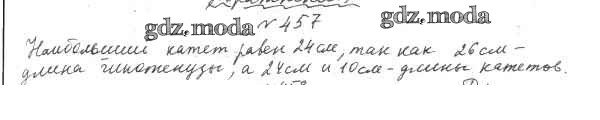 gdz.moda № 457 gdz.moda
Наибольший катет равен 24см, так как 26см -
длина гипотенузы, а 24см и 10см - длины катетов.